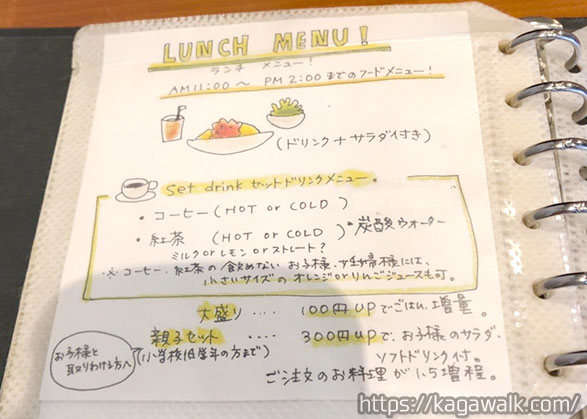 LUNCH MENU!
ランチ メニュー!
AM11:00〜 PM 2:00までのフードメニュー!
(ドリンク+サラダ付き)
set drink セットドリンクメニュー。
・コーヒー(HOT or COLD)
・紅茶 (HOT or COLD) *炭酸ウォーター
ミルク or レモン or ストレート?
※コーヒー、紅茶の飲めないお子様、妊婦様には、
小さいサイズのオレンジorりんごジュースも可。
大盛り ‥‥ 100円UPでごはん増量。
親子セット ‥‥ 300円UPで、お子様のサラダ、
お子様と
取りわける方へ
(小学校低学年の方まで)
ソフトドリンク付。
ご注文のお料理が1.5増程。
https://kagawalk.com/